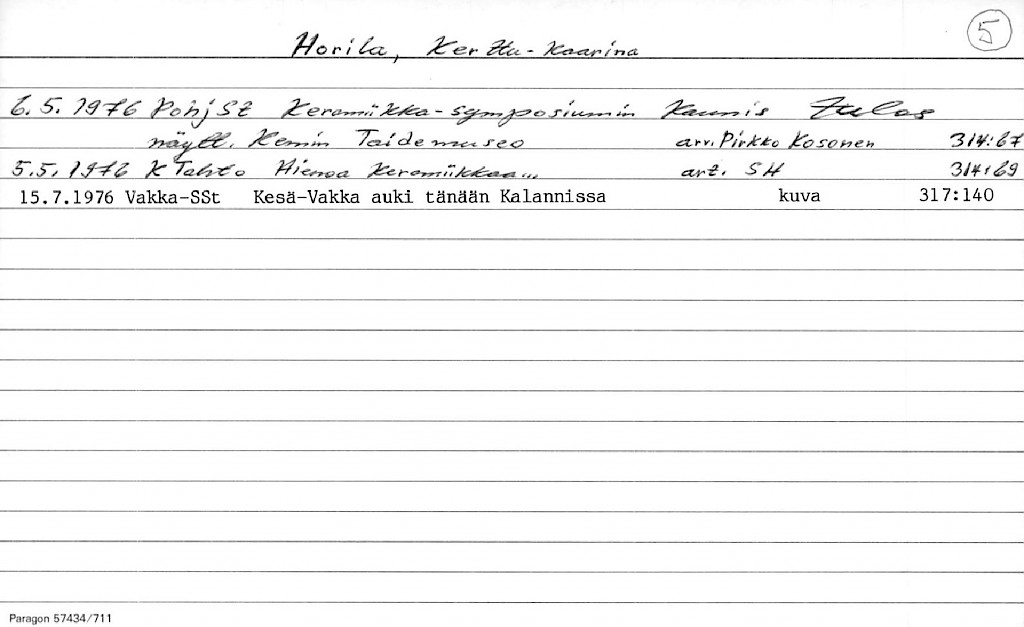 5
Horila, Kerttu-Kaarina
6.5.1976 PohjSt Keramiikka-symposiumin kaunis tulos
näytt. Kemin Taidemuseo arv. Pirkko Kosonen 314:67
5.5.1976 K Tahto Hienoa keramiikkaa... art. SH 314:69
15.7.1976 Vakka-SSt Kesä-Vakka auki tänään Kalannissa kuva 317:140
Paragon 57434/711